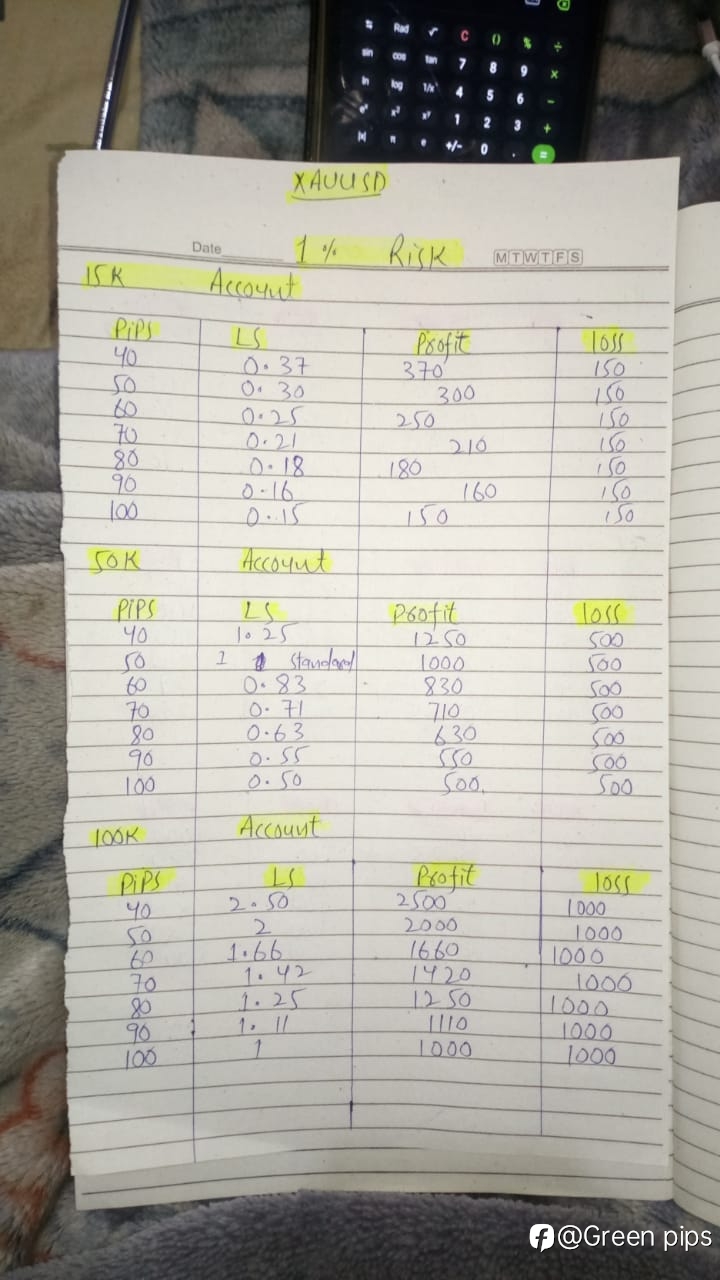 Rad √ C () % ÷
sin cos tan 7 8 9 ×
ln log 1/x 4 5 6 −
eˣ x² xʸ 1 2 3 +
|x| π e +/− 0 . =
XAUUSD
Date 1% Risk M T W T F S
15K Account
PiPS LS Profit loss
40 0.37 370 150
50 0.30 300 150
60 0.25 250 150
70 0.21 210 150
80 0.18 180 150
90 0.16 160 150
100 0.15 150 150
50K Account
PiPS LS Profit loss
40 1.25 1250 500
50 1 standard 1000 500
60 0.83 830 500
70 0.71 710 500
80 0.63 630 500
90 0.55 550 500
100 0.50 500. 500
100K Account
PiPS LS Profit loss
40 2.50 2500 1000
50 2 2000 1000
60 1.66 1660 1000
70 1.42 1420 1000
80 1.25 1250 1000
90 1.11 1110 1000
100 1 1000 1000
@Green pips